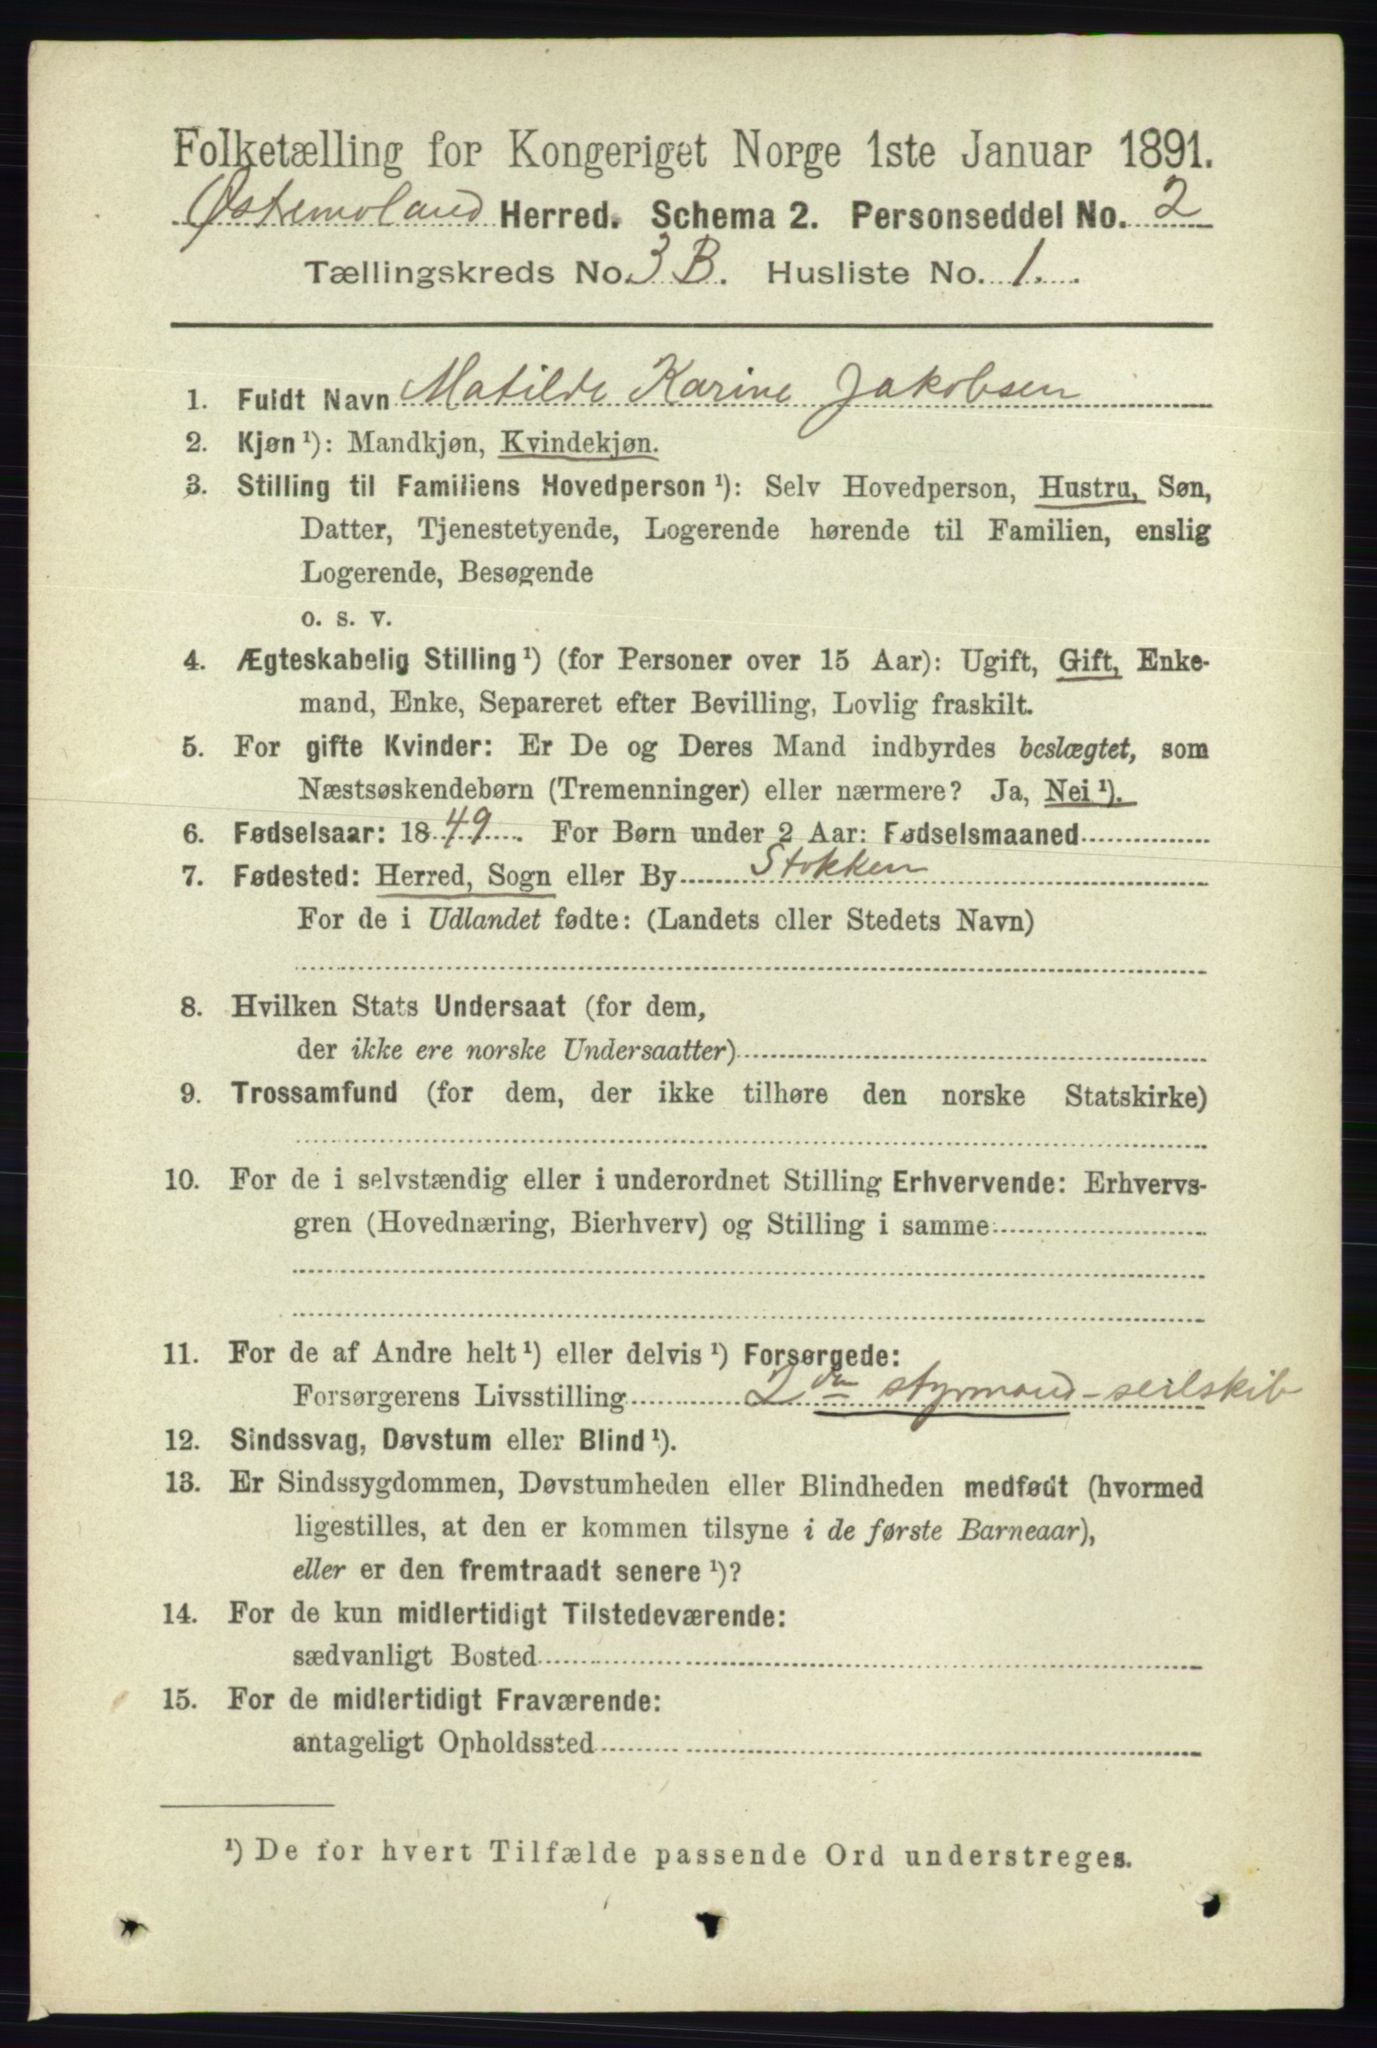 Folketælling for Kongeriget Norge 1ste Januar 1891.
Østremoland Herred. Schema 2. Personseddel No. 2
Tællingskreds No. 3 B. Husliste No. 1.
1. Fuldt Navn Matilde Karine Jakobsen
2. Kjøn ¹): Mandkjøn, Kvindekjøn.
3. Stilling til Familiens Hovedperson ¹): Selv Hovedperson, Hustru, Søn,
Datter, Tjenestetyende, Logerende hørende til Familien, enslig
Logerende, Besøgende
o. s. v.
4. Ægteskabelig Stilling ¹) (for Personer over 15 Aar): Ugift, Gift, Enke-
mand, Enke, Separeret efter Bevilling, Lovlig fraskilt.
5. For gifte Kvinder: Er De og Deres Mand indbyrdes beslægtet, som
Næstsøskendebørn (Tremenninger) eller nærmere? Ja, Nei ¹).
6. Fødselsaar: 1849. For Børn under 2 Aar: Fødselsmaaned
7. Fødested: Herred, Sogn eller By Stokken
For de i Udlandet fødte: (Landets eller Stedets Navn)
8. Hvilken Stats Undersaat (for dem,
der ikke ere norske Undersaatter)
9. Trossamfund (for dem, der ikke tilhøre den norske Statskirke)
10. For de i selvstændig eller i underordnet Stilling Erhvervende: Erhvervs-
gren (Hovednæring, Bierhverv) og Stilling i samme
11. For de af Andre helt ¹) eller delvis ¹) Forsørgede:
Forsørgerens Livsstilling 2den styrmand - seilskib
12. Sindssvag, Døvstum eller Blind ¹).
13. Er Sindssygdommen, Døvstumheden eller Blindheden medfødt (hvormed
ligestilles, at den er kommen tilsyne i de første Barneaar),
eller er den fremtraadt senere ¹)?
14. For de kun midlertidigt Tilstedeværende:
sædvanligt Bosted
15. For de midlertidigt Fraværende:
antageligt Opholdssted
¹) De for hvert Tilfælde passende Ord understreges.